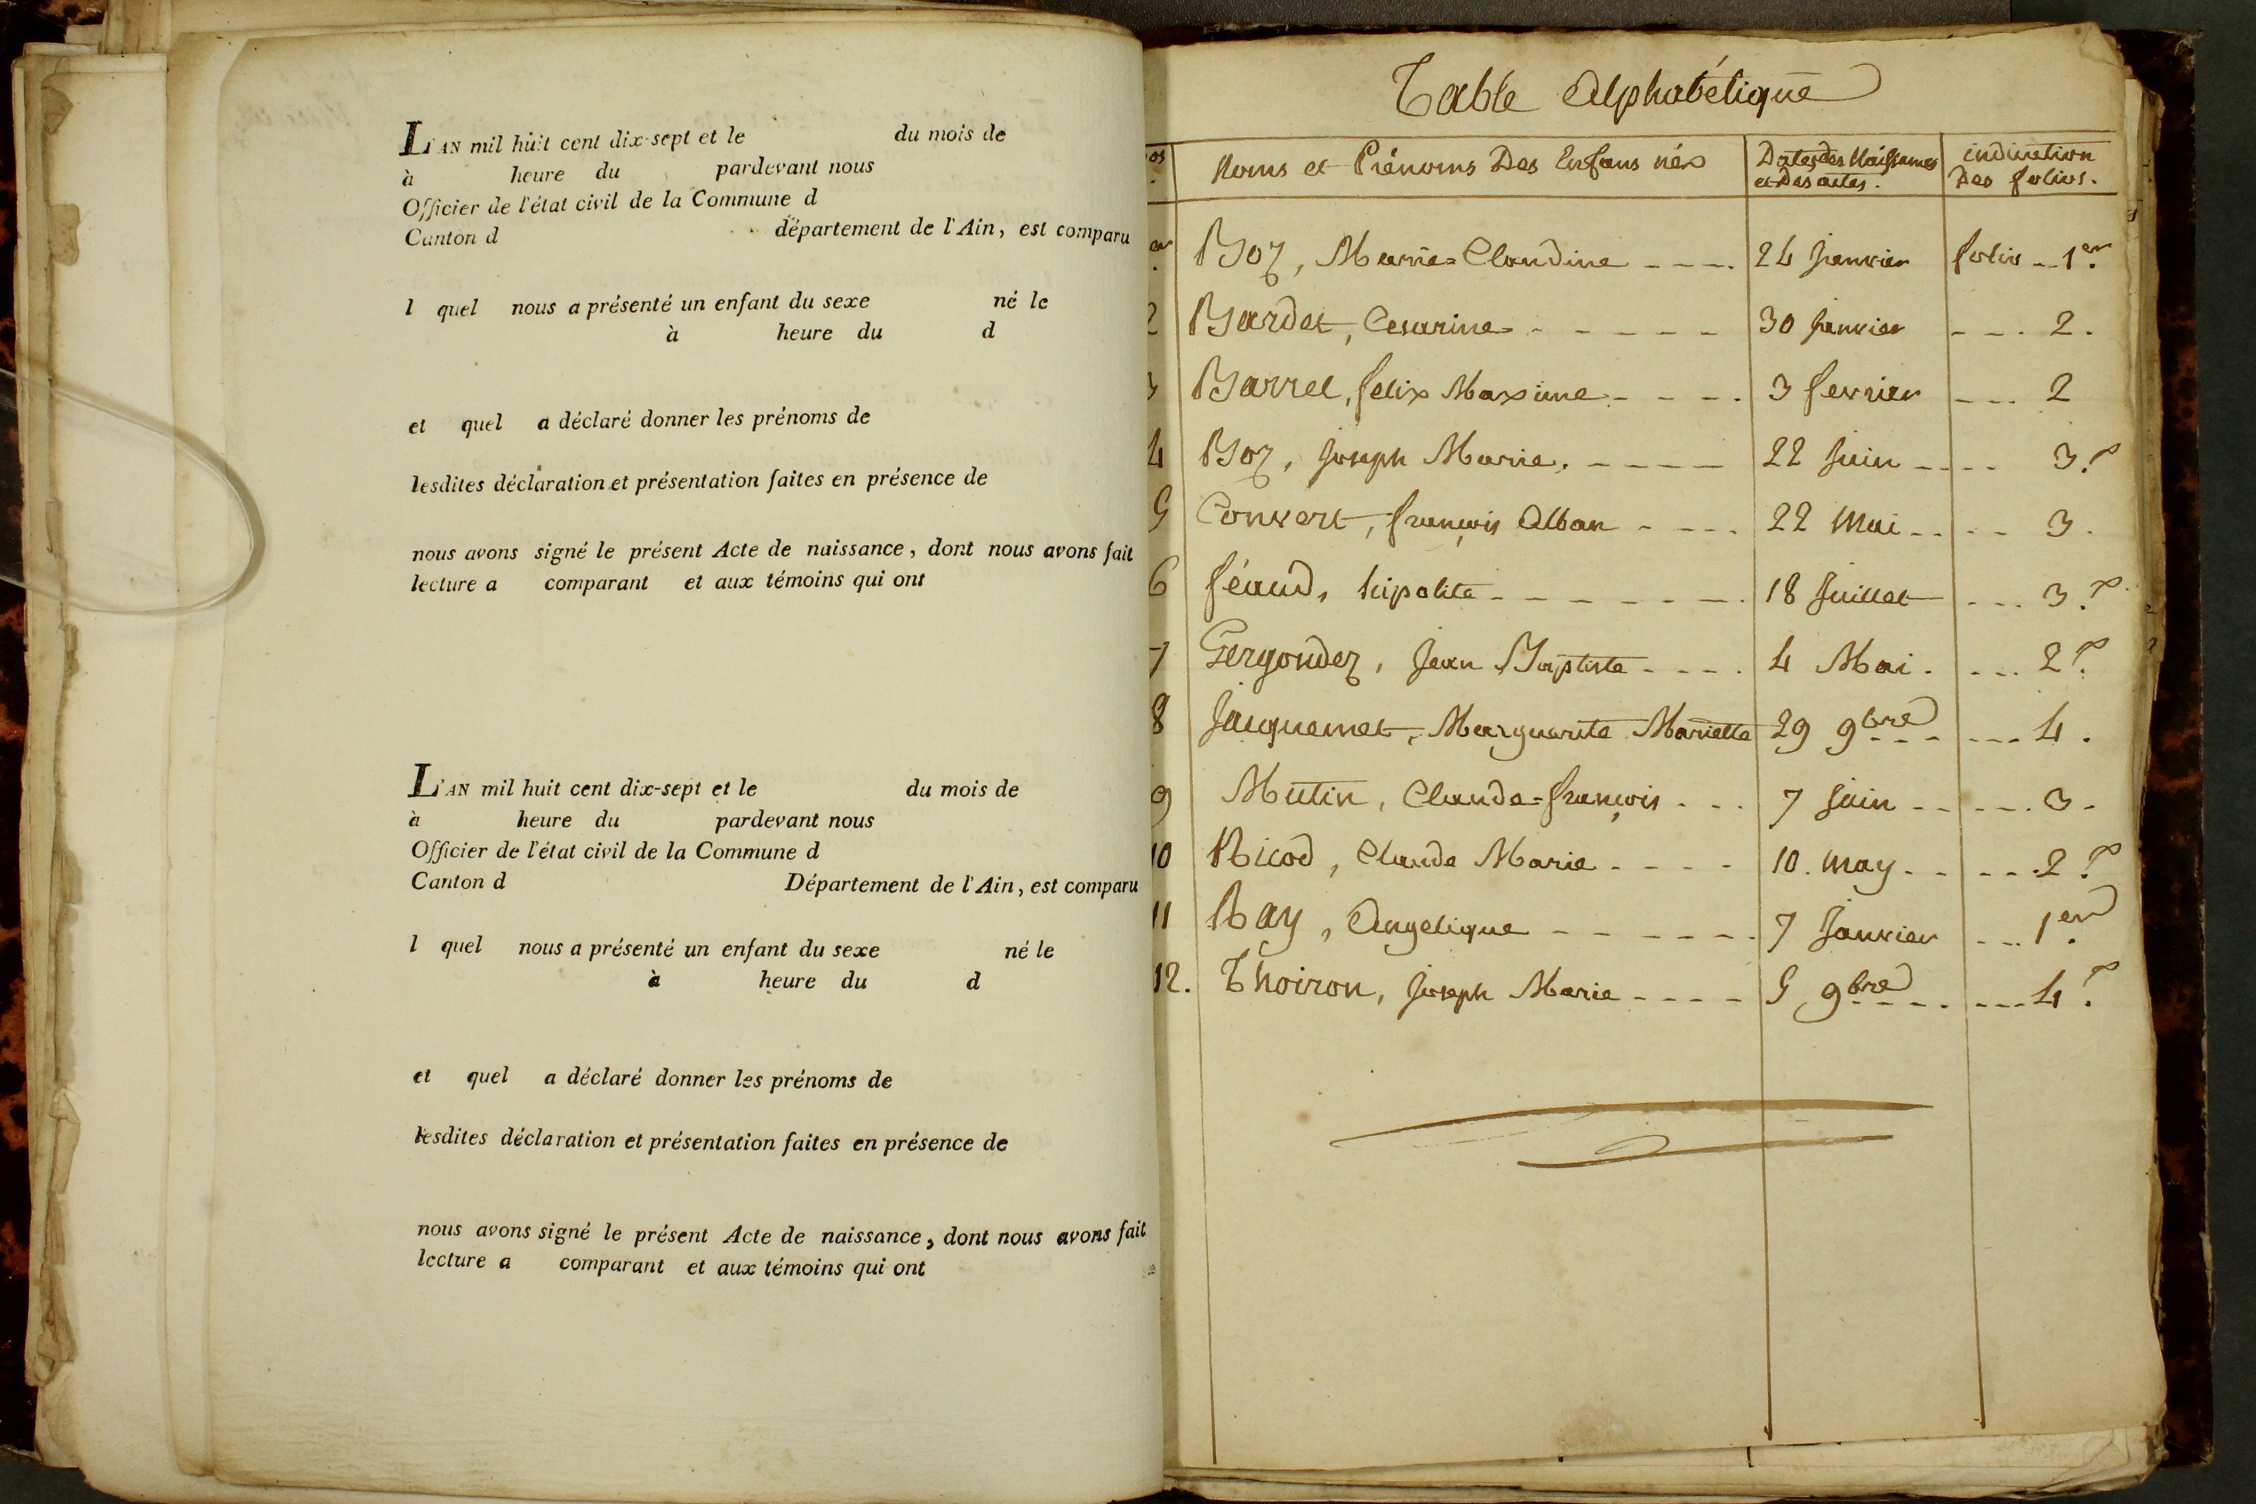 L'AN mil huit cent dix-sept et le du mois de
à heure du pardevant nous
Officier de l'état civil de la Commune d
Canton d département de l'Ain, est comparu
l quel nous a présenté un enfant du sexe né le
à heure du d
et quel a déclaré donner les prénoms de
lesdites déclaration et présentation faites en présence de
nous avons signé le présent Acte de naissance, dont nous avons fait
lecture a comparant et aux témoins qui ont
L'AN mil huit cent dix-sept et le du mois de
à heure du pardevant nous
Officier de l'état civil de la Commune d
Canton d Département de l'Ain, est comparu
l quel nous a présenté un enfant du sexe né le
à heure du d
et quel a déclaré donner les prénoms de
lesdites déclaration et présentation faites en présence de
nous avons signé le présent Acte de naissance, dont nous avons fait
lecture a comparant et aux témoins qui ont
Table Alphabétique
os Noms et Prénoms Des Enfans nés Dates des Naissances indication
et Des actes. Des folios.
er Boz, Marie=Claudine ---- 24 janvier folio -- 1er.
2 Bardet, Cesarine ------ 30 janvier --- 2.
3 Barrel, felix Maxime ---- 3 fevrier --- 2
4 Boz, Joseph Marie. ---- 22 Juin ---- 3.
5 Convert, françois Alban ---- 22 Mai ---- 3.
6 féaud, hipolite ------ 18 Juillet --- 3.
7 Gergondez, Jean Baptiste ---- 4 Mai. --- 2.
8 Jacquemet, Marguerite Mariette 29 9bre --- 4.
9 Mutin, Claude=françois --- 7 Juin ---- 3.
10 Ricod, Claude Marie ---- 10. may ---- 2.
11 Ray, Angelique ------ 7 Janvier --- 1er.
12. Thoiron, Joseph Marie ---- 5 9bre --- 4.